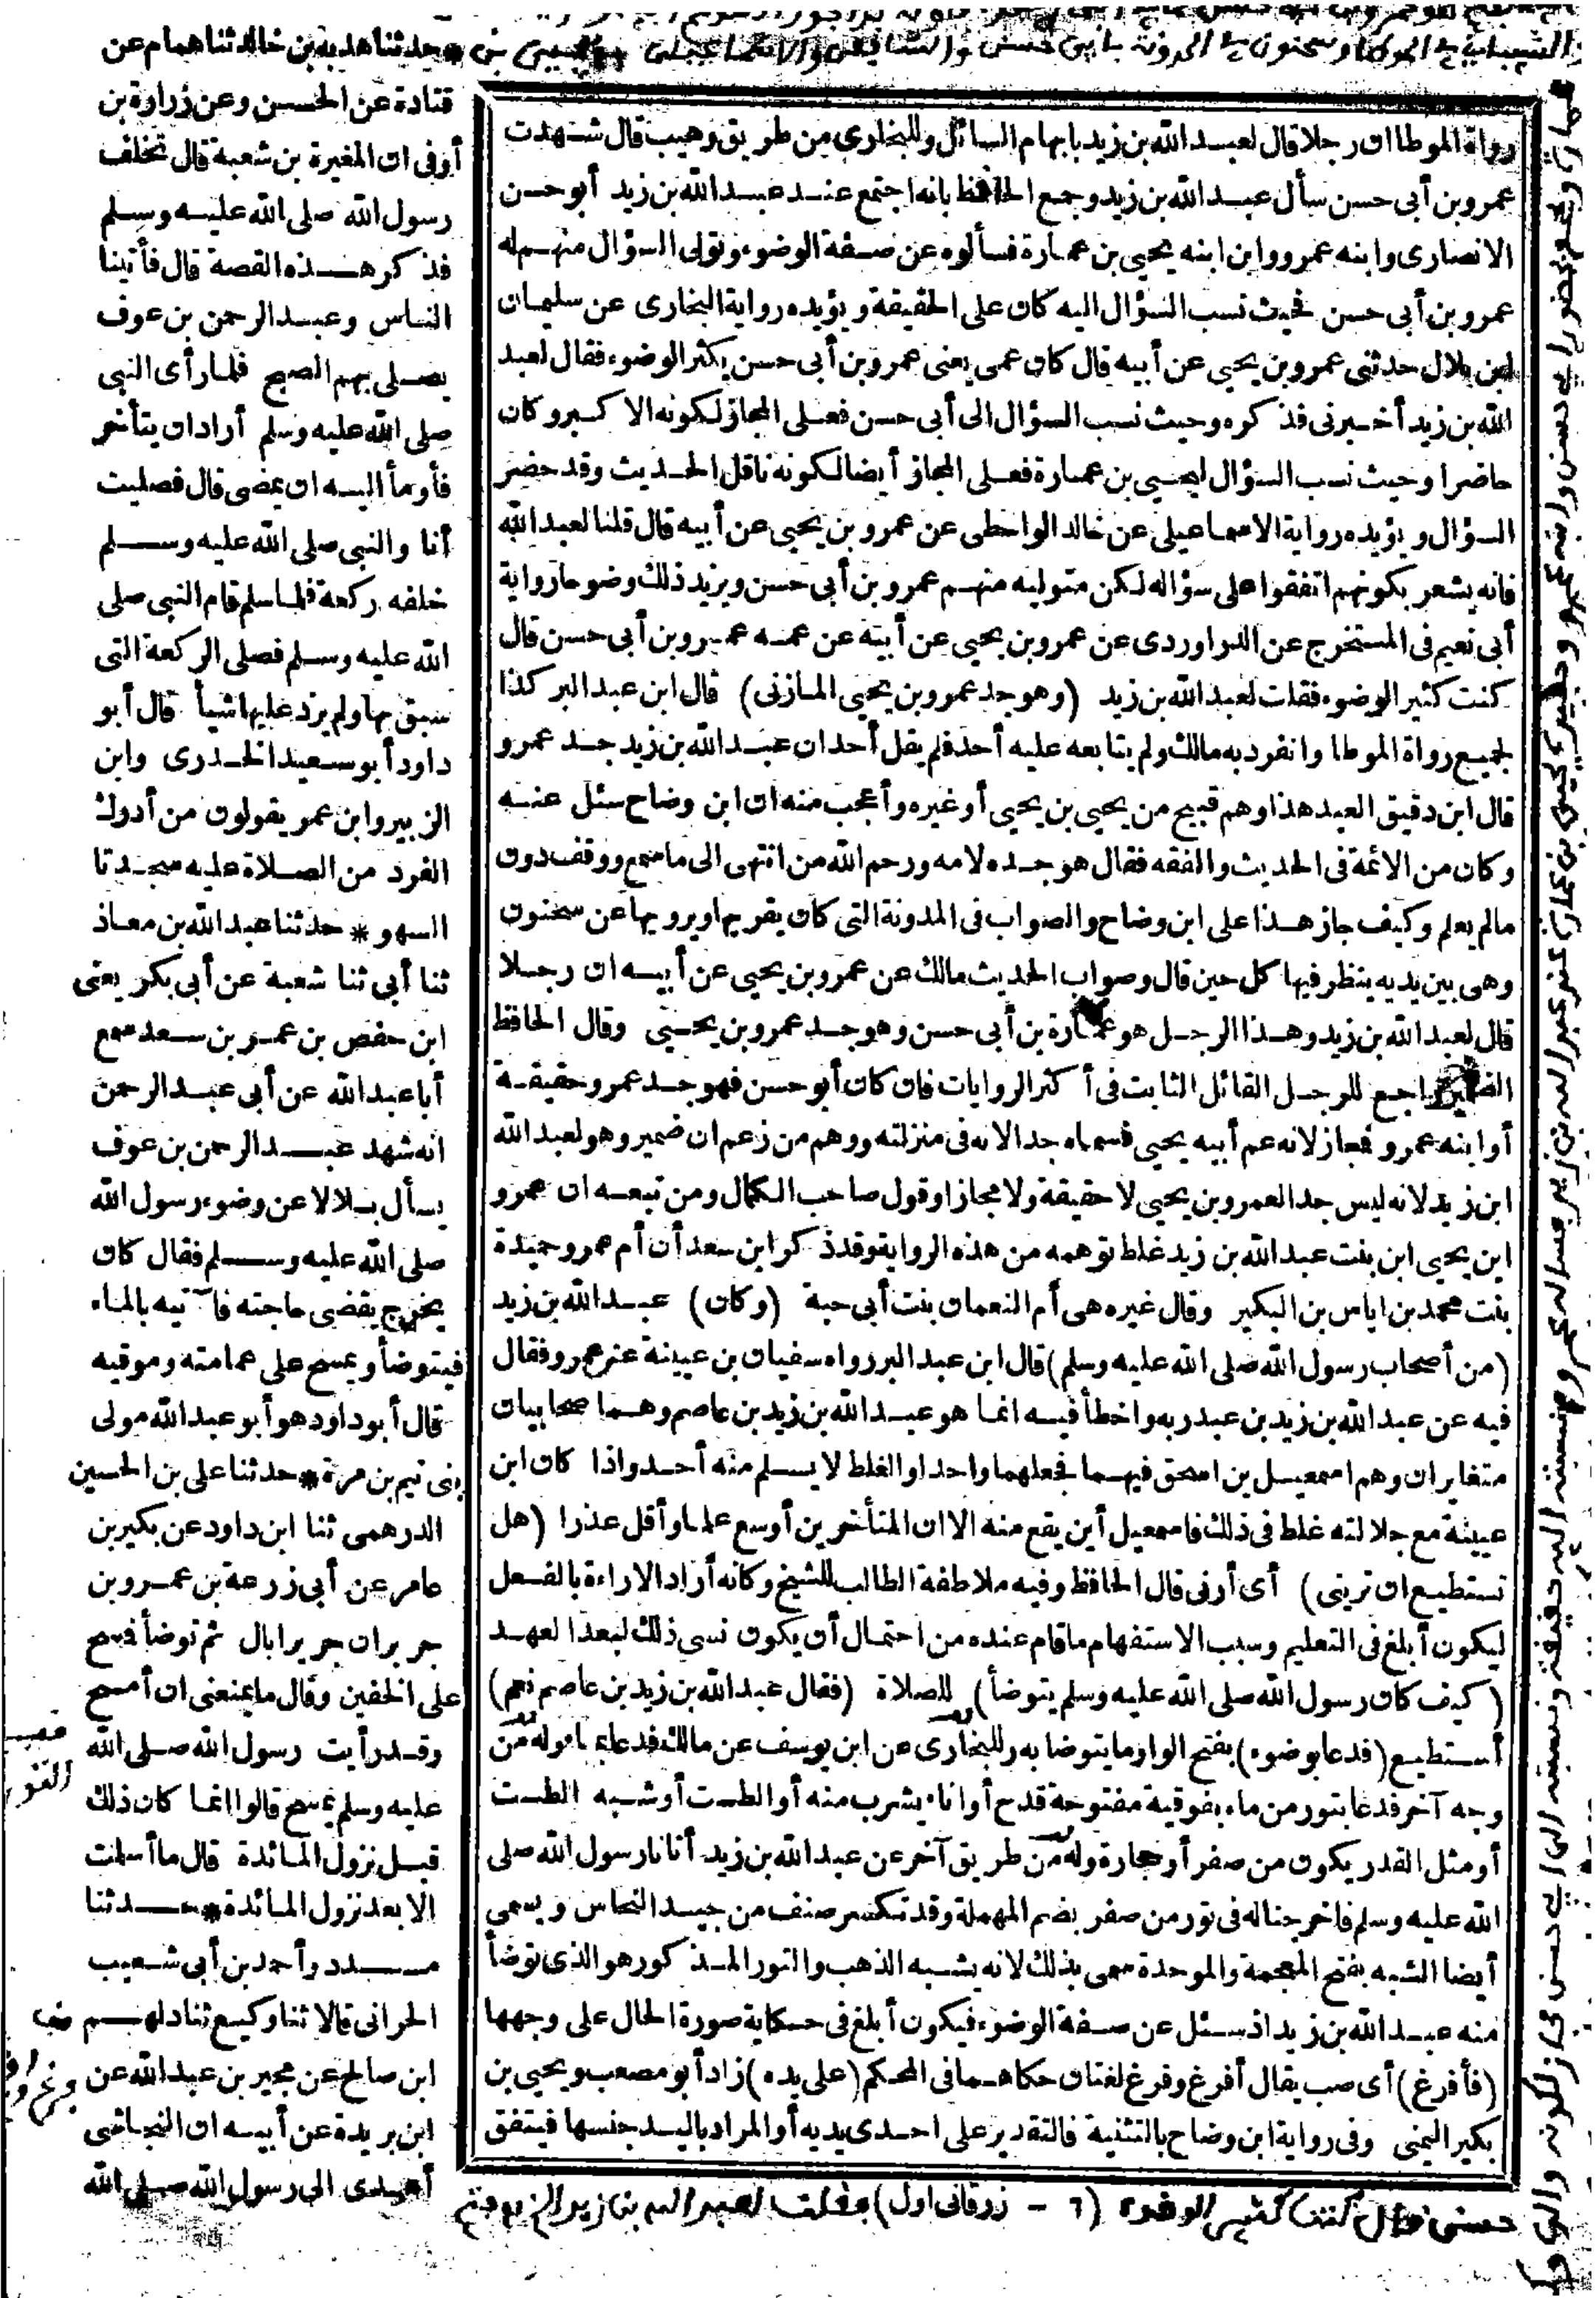 رواة الموطا ان رجلا قال لعبد الله بن زيد بابهام السائل وللبخارى من طريق وهيب قال شهدت
عمرو بن أبى حسن سأل عبد الله بن زيد وجمع الحافظ بانه اجتمع عند عبد الله بن زيد أبو حسن
الانصارى وابنه عمرو وابن ابنه يحيى بن عمارة فسألوه عن صفة الوضوء وتولى السؤال منهم له
عمرو بن أبى حسن فحيث نسب السؤال اليه كان على الحقيقة ويؤيده رواية البخارى عن سليمان
ابن بلال حدثنى عمرو بن يحيى عن أبيه قال كان عمى يعنى عمرو بن أبى حسن يكثر الوضوء فقال لعبد
الله بن زيد أخبرنى فذكره وحيث نسب السؤال الى أبى حسن فعلى المجاز لكونه الاكبر وكان
حاضرا وحيث نسب السؤال ليحيى بن عمارة فعلى المجاز أيضا لكونه ناقل الحديث وقد حضر
السؤال ويؤيده رواية الاسماعيلى عن خالد الواسطى عن عمرو بن يحيى عن أبيه قال قلنا لعبد الله
فانه يشعر بكونهم اتفقوا على سؤاله لكن متوليه منهم عمرو بن أبى حسن ويزيد ذلك وضوحا رواية
أبى نعيم فى المستخرج عن الدراوردى عن عمرو بن يحيى عن أبيه عن عمه عمرو بن أبى حسن قال
كنت كثير الوضوء فقلت لعبد الله بن زيد (وهو جد عمرو بن يحيى المازنى) قال ابن عبد البر كذا
لجميع رواة الموطا وانفرد به مالك ولم يتابعه عليه أحد فلم يقل أحد ان عبد الله بن زيد جد عمرو
قال ابن دقيق العيد هذا وهم قبيح من يحيى بن يحيى أو غيره وأعجب منه ان ابن وضاح سئل عنه
وكان من الائمة فى الحديث والفقه فقال هو جده لامه ورحم الله من انتهى الى ما سمع ووقف دون
مالم يعلم وكيف جاز هذا على ابن وضاح والصواب فى المدونة التى كان يقريها ويرويها عن سحنون
وهى بين يديه ينظر فيها كل حين قال وصواب الحديث مالك عن عمرو بن يحيى عن أبيه ان رجلا
قال لعبد الله بن زيد وهذا الرجل هو عمارة بن أبى حسن وهو جد عمرو بن يحيى وقال الحافظ
الضمير راجع للرجل القائل الثابت فى أكثر الروايات فان كان أبو حسن فهو جد عمرو حقيقة
أو ابنه عمرو فمجاز لانه عم أبيه يحيى فسماه جدا لانه فى منزلته ووهم من زعم ان ضمير وهو لعبد الله
ابن زيد لانه ليس جدا لعمرو بن يحيى لا حقيقة ولا مجازا وقول صاحب الكمال ومن تبعه ان عمرو
ابن يحيى ابن بنت عبد الله بن زيد غلط توهمه من هذه الرواية وقد ذكر ابن سعد أن أم عمرو حميدة
بنت محمد بن اياس بن البكير وقال غيره هى أم النعمان بنت أبى حبة (وكان) عبد الله بن زيد
(من أصحاب رسول الله صلى الله عليه وسلم) قال ابن عبد البر رواه سفيان بن عيينة عن عمرو فقال
فيه عن عبد الله بن زيد بن عبد ربه وأخطأ فيه انما هو عبد الله بن زيد بن عاصم وهما صحابيان
متغايران وهم اسمعيل بن اسحق فيهما فجعلهما واحدا والغلط لا يسلم منه أحد واذا كان ابن
عيينة مع جلالته غلط فى ذلك فاسمعيل أين يقع منه الا ان المتأخرين أوسع علما وأقل عذرا (هل
تستطيع ان ترينى) أى أرنى قال الحافظ وفيه ملاطفة الطالب للشيخ وكانه أراد الاراءة بالفعل
ليكون أبلغ فى التعليم وسبب الاستفهام ما قام عنده من احتمال أن يكون نسى ذلك لبعد العهد
(كيف كان رسول الله صلى الله عليه وسلم يتوضأ) للصلاة (فقال عبد الله بن زيد بن عاصم نعم)
أستطيع (فدعا بوضوء) بفتح الواو ما يتوضا به وللبخارى عن ابن يوسف عن مالك فدعا بماء وله من
وجه آخر فدعا بتور من ماء بفوقية مفتوحة قدح أو اناء يشرب منه أو الطست أو شبه الطست
أو مثل القدر يكون من صفر أو حجارة وله من طريق آخر عن عبد الله بن زيد أتانا رسول الله صلى
الله عليه وسلم فاخرجنا له فى تور من صفر بضم المهملة وقد تكسر صنف من جيد النحاس ويسمى
أيضا الشبه بفتح المعجمة والموحدة سمى بذلك لانه يشبه الذهب والتور المذكور هو الذى توضأ
منه عبد الله بن زيد اذ سئل عن صفة الوضوء فيكون أبلغ فى حكاية صورة الحال على وجهها
(فأفرغ) أى صب يقال أفرغ وفرغ لغتان حكاهما فى المحكم (على يده) زاد أبو مصعب ويحيى بن
بكير اليمنى وفى رواية ابن وضاح بالتثنية فالتقدير على احدى يديه أو المراد باليد جنسها فيتفق
(٦ - زرقانى اول)
حسن قال كنت كثير الوضوء فقلت لعبد الله بن زيد الخ
* حدثنا هدبة بن خالد ثنا همام عن
قتادة عن الحسن وعن زرارة بن
أوفى ان المغيرة بن شعبة قال تخلف
رسول الله صلى الله عليه وسلم
فذكر هذه القصة قال فأتينا
الناس وعبد الرحمن بن عوف
يصلى بهم الصبح فلما رأى النبى
صلى الله عليه وسلم أراد ان يتأخر
فأومأ اليه ان يمضى قال فصليت
أنا والنبى صلى الله عليه وسلم
خلفه ركعة فلما سلم قام النبى صلى
الله عليه وسلم فصلى الركعة التى
سبق بها ولم يزد عليها شيأ قال أبو
داود أبو سعيد الخدرى وابن
الزبير وابن عمر يقولون من أدرك
الفرد من الصلاة عليه سجدتا
السهو * حدثنا عبد الله بن معاذ
ثنا أبى ثنا شعبة عن أبى بكر يعنى
ابن حفص بن عمر بن سعد سمع
أبا عبد الله عن أبى عبد الرحمن
انه شهد عبد الرحمن بن عوف
يسأل بلالا عن وضوء رسول الله
صلى الله عليه وسلم فقال كان
يخرج يقضى حاجته فآتيه بالماء
فيتوضأ ويمسح على عمامته وموقيه
قال أبو داود هو أبو عبد الله مولى
بنى تيم بن مرة * حدثنا على بن الحسين
الدرهمى ثنا ابن داود عن بكير بن
عامر عن أبى زرعة بن عمرو بن
جرير ان جريرا بال ثم توضأ فمسح
على الخفين وقال ما يمنعنى ان أمسح
وقد رأيت رسول الله صلى الله
عليه وسلم يمسح قالوا انما كان ذلك
قبل نزول المائدة قال ما أسلمت
الا بعد نزول المائدة * حدثنا
مسدد وأحمد بن أبى شعيب
الحرانى قالا ثنا وكيع ثنا دلهم
ابن صالح عن حجير بن عبد الله عن
ابن بريدة عن أبيه ان النجاشى
أهدى الى رسول الله صلى الله